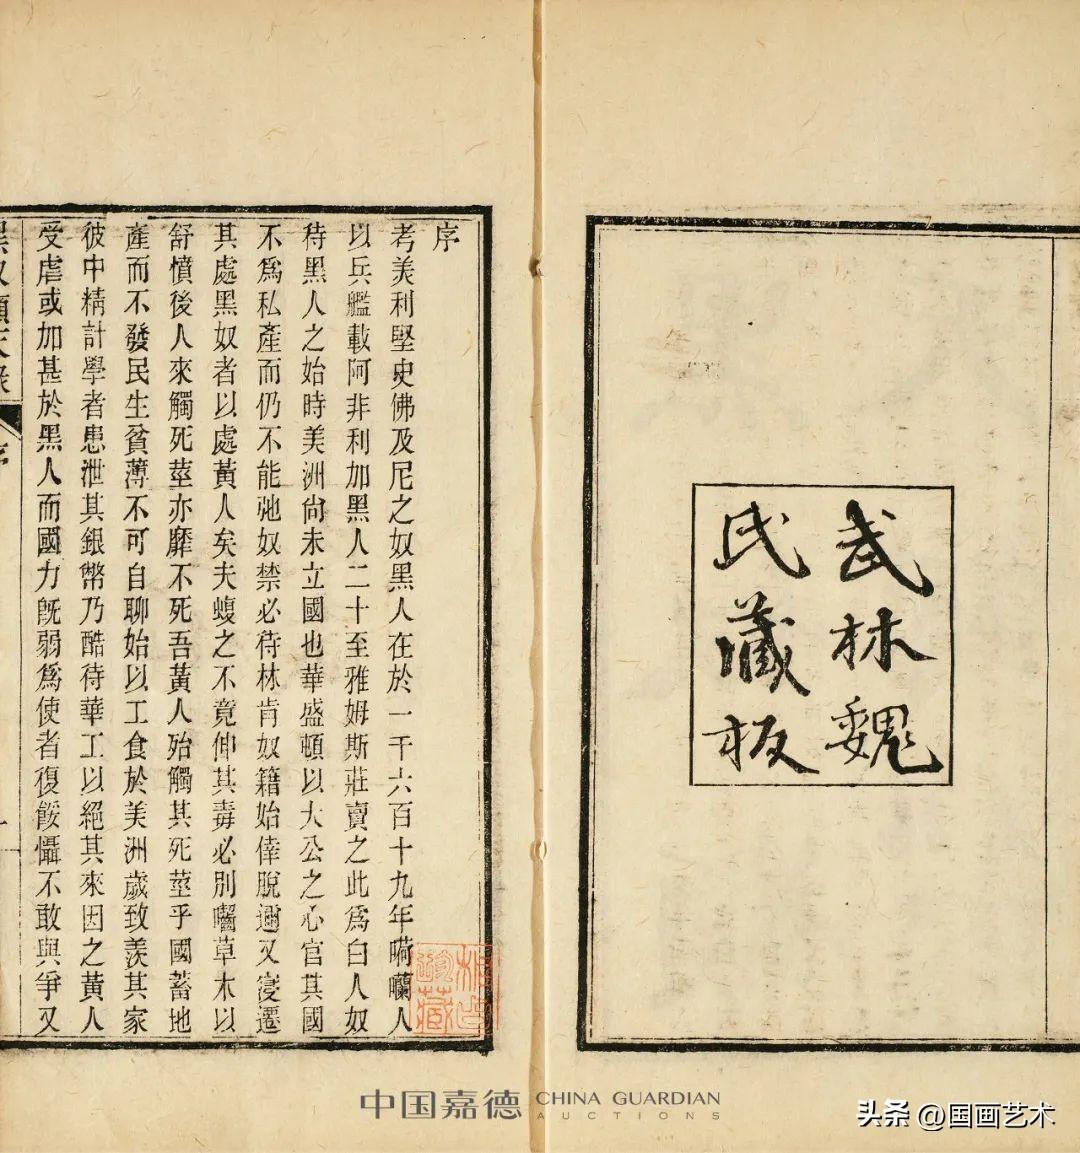 武林魏
氏藏板
序
考美利堅史佛及尼之奴黑人在於一千六百十九年嗬囒人
以兵艦載阿非利加黑人二十至雅姆斯莊賣之此爲白人奴
待黑人之始時美洲尙未立國也華盛頓以大公之心官其國
不爲私產而仍不能弛奴禁必待林肯奴籍始倖脫邇又寖遷
其處黑奴者以處黃人矣夫蝮之不竟伸其毒必別囓草木以
舒憤後人來觸死莖亦靡不死吾黃人殆觸其死莖乎國蓄地
產而不發民生貧薄不可自聊始以工食於美洲歲致羨其家
彼中精計學者患泄其銀幣乃酷待華工以絕其來因之黃人
受虐或加甚於黑人而國力旣弱爲使者復餒懾不敢與爭又
黑奴籲天錄
序
一
珍藏
中国嘉德 CHINA GUARDIAN
AUCTIONS
头条 @国画艺术